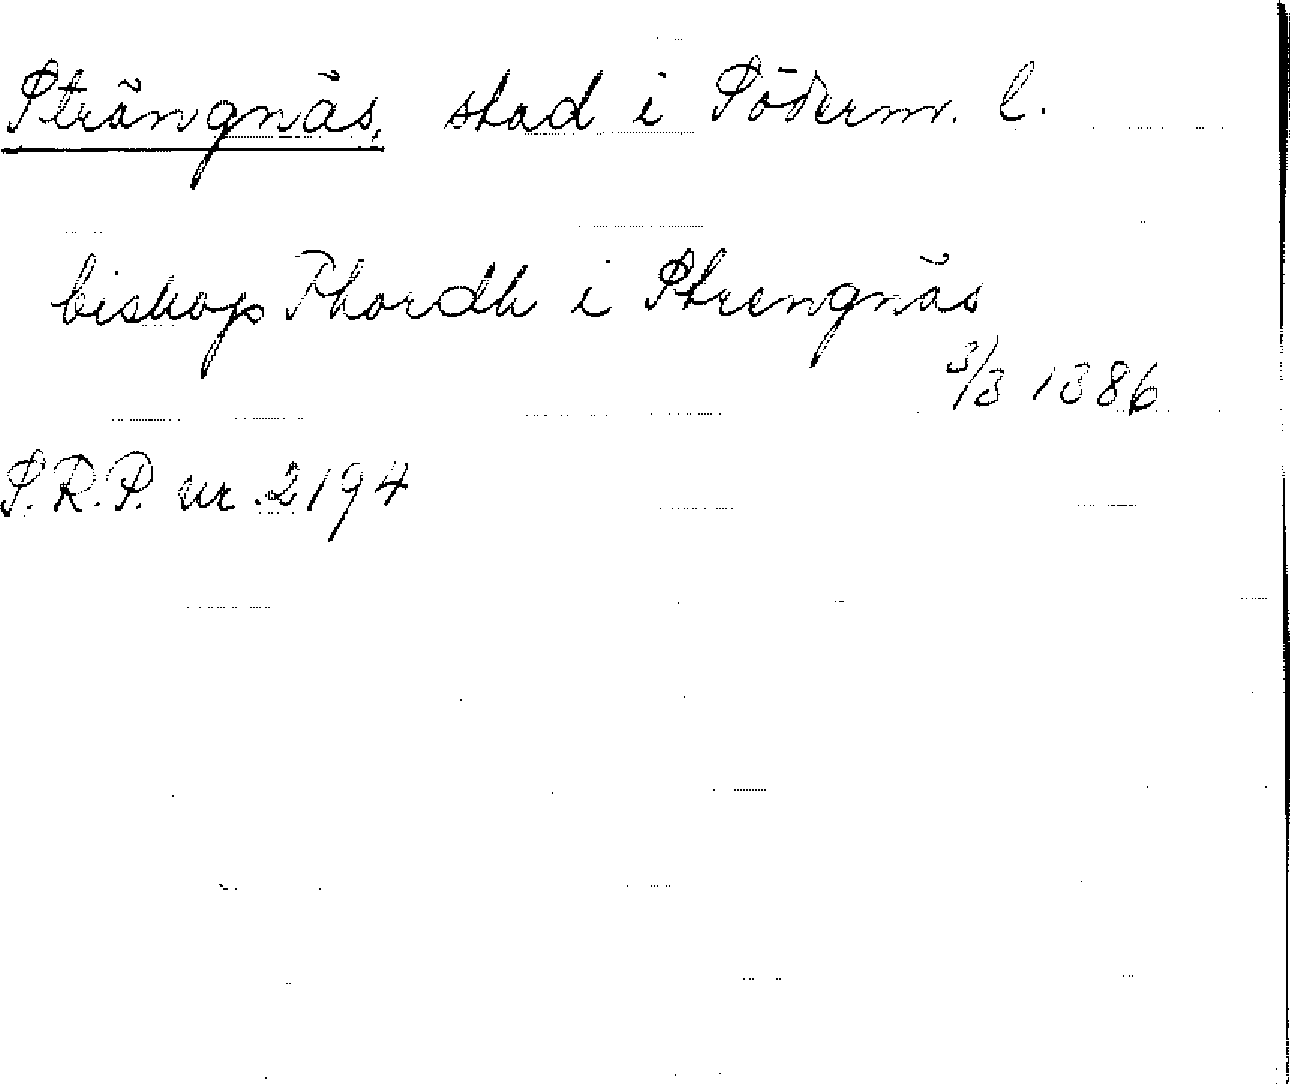 Strängnäs, stad i Söderm. l.
biskop Thordh i Strengnäs
3/3 1386
S.R.P. nr. 2194